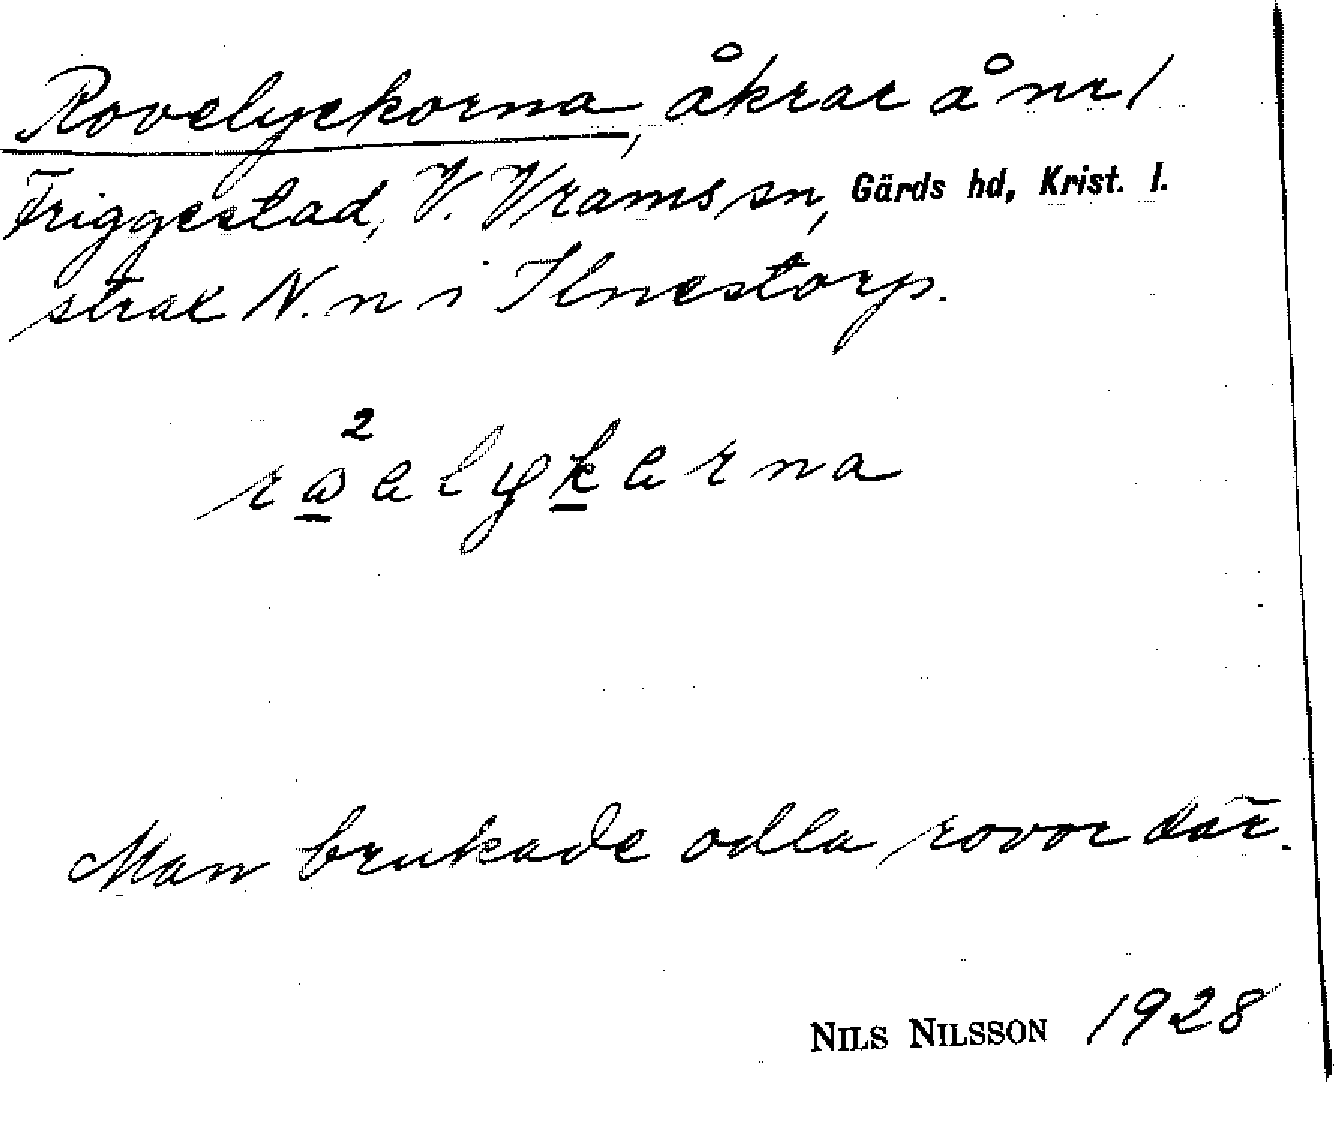 Rovelyckorna, åkrar å nr 1
Friggestad, V. Vrams sn, Gärds hd, Krist. l.
strax N. n i Ilnestorp.
2
rɷalykarna
Man brukade odla rovor där.
NILS NILSSON 1928